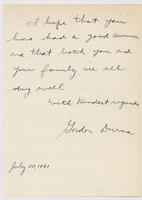 I hope that you
have had a good summer
and that both you and
your family are all
very well.
With kindest regards
Gordon
July 30, 1941